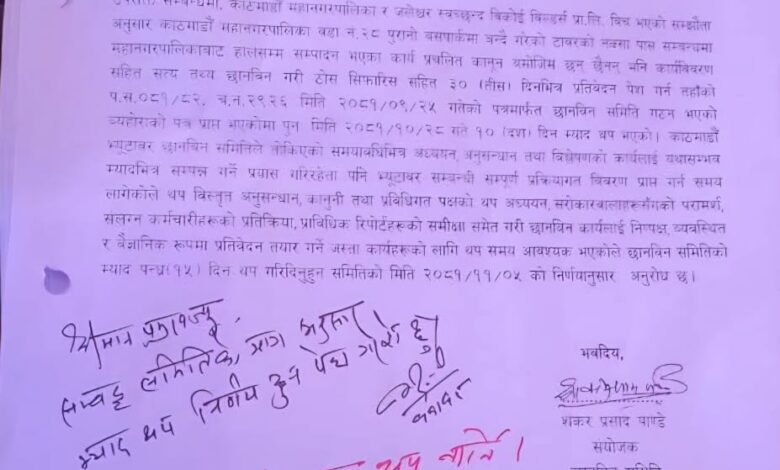 उपरोक्त सम्बन्धमा, काठमाडौं महानगरपालिका र जलेश्वर स्वच्छन्द बिकोई बिल्डर्स प्रा.लि. बिच भएको सम्झौता
अनुसार काठमाडौं महानगरपालिका वडा नं.२८ पुरानो बसपार्कमा बन्दै गरेको टावरको नक्सा पास सम्बन्धमा
महानगरपालिकाबाट हालसम्म सम्पादन भएका कार्य प्रचलित कानून बमोजिम छन् छैनन् भनि कार्यविवरण
सहित सत्य तथ्य छानविन गरी ठोस सिफारिस सहित ३० (तीस) दिनभित्र प्रतिवेदन पेश गर्न तहाँको
प.स.०८१/८२, च.नं.२९२६ मिति २०८१/०९/२५ गतेको पत्रमार्फत छानविन समिति गठन भएको
व्यहोराको पत्र प्राप्त भएकोमा पुनः मिति २०८१/१०/२८ गते १० (दश) दिन म्याद थप भएको। काठमाडौं
भ्यूटावर छानविन समितिले तोकिएको समयावधिभित्र अध्ययन, अनुसन्धान तथा विश्लेषणको कार्यलाई यथासम्भव
म्यादभित्र सम्पन्न गर्ने प्रयास गरिरहेता पनि भ्यूटावर सम्बन्धी सम्पूर्ण प्रक्रियागत विवरण प्राप्त गर्न समय
लागेकोले थप विस्तृत अनुसन्धान, कानुनी तथा प्रविधिगत पक्षको थप अध्ययन, सरोकारवालाहरूसँगको परामर्श,
संलग्न कर्मचारीहरूको प्रतिक्रिया, प्राविधिक रिपोर्टहरूको समीक्षा समेत गरी छानविन कार्यलाई निष्पक्ष, व्यवस्थित
र वैज्ञानिक रूपमा प्रतिवेदन तयार गर्ने जस्ता कार्यहरूको लागि थप समय आवश्यक भएकोले छानविन समितिको
म्याद पन्ध्र(१५) दिन थप गरिदिनुहुन समितिको मिति २०८१/११/०५ को निर्णयानुसार अनुरोध छ।
श्रीमान्
माग अनुसार
म्याद थप निर्णय हुन पेश गरेको छु
भवदिय,
शंकर प्रसाद पाण्डे
संयोजक
छानविन समिति
थप गर्ने।